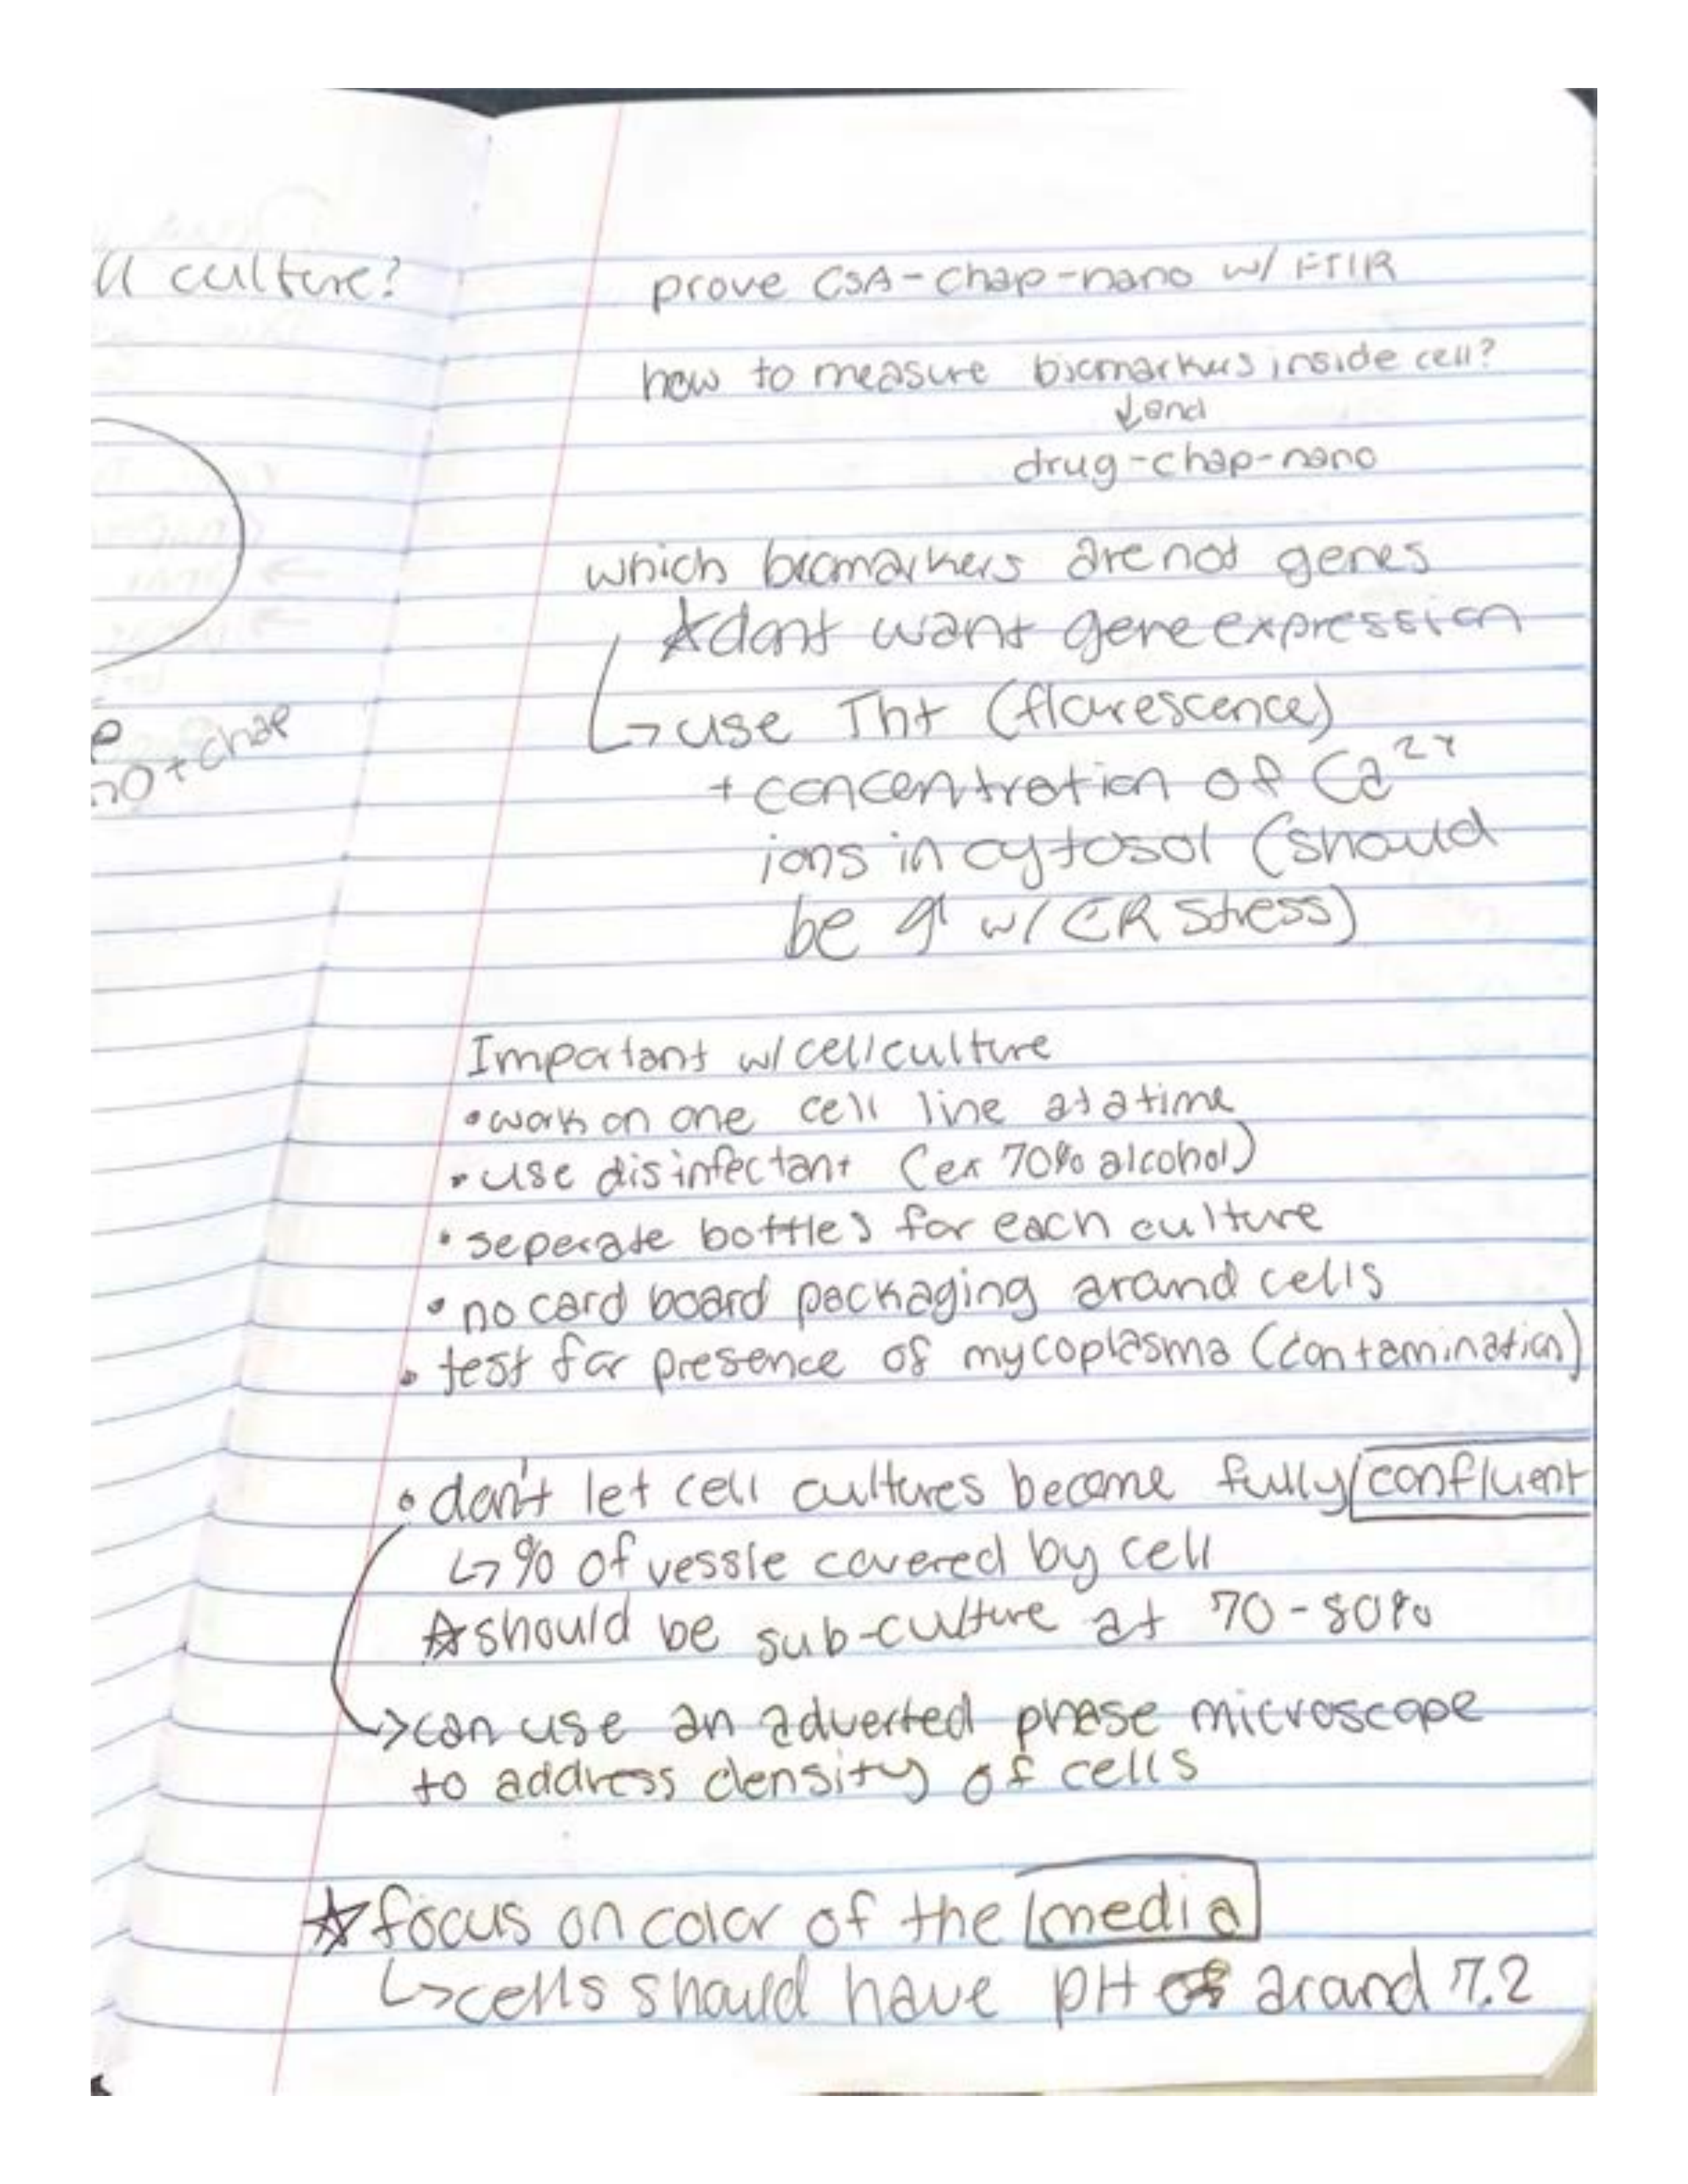 culture?
no + chap
prove CSA-chap-nano w/ FTIR
how to measure biomarkers inside cell?
↓ and
drug-chap-nano
which biomarkers are not genes
☆ dont want gene expression
↳ use Tht (flourescence)
+ concentration of Ca²⁺
ions in cytosol (should
be ↑ w/ ER stress)
Important w/ cell culture
• work on one cell line at a time
• use disinfectant (ex 70% alcohol)
• seperate bottles for each culture
• no card board packaging around cells
• test for presence of mycoplasma (contamination)
• don't let cell cultures become fully confluent
↳ % of vessle covered by cell
☆ should be sub-culture at 70-80%
→ can use an adverted phase microscope
to address density of cells
☆ focus on color of the media
↳ cells should have pH of around 7.2